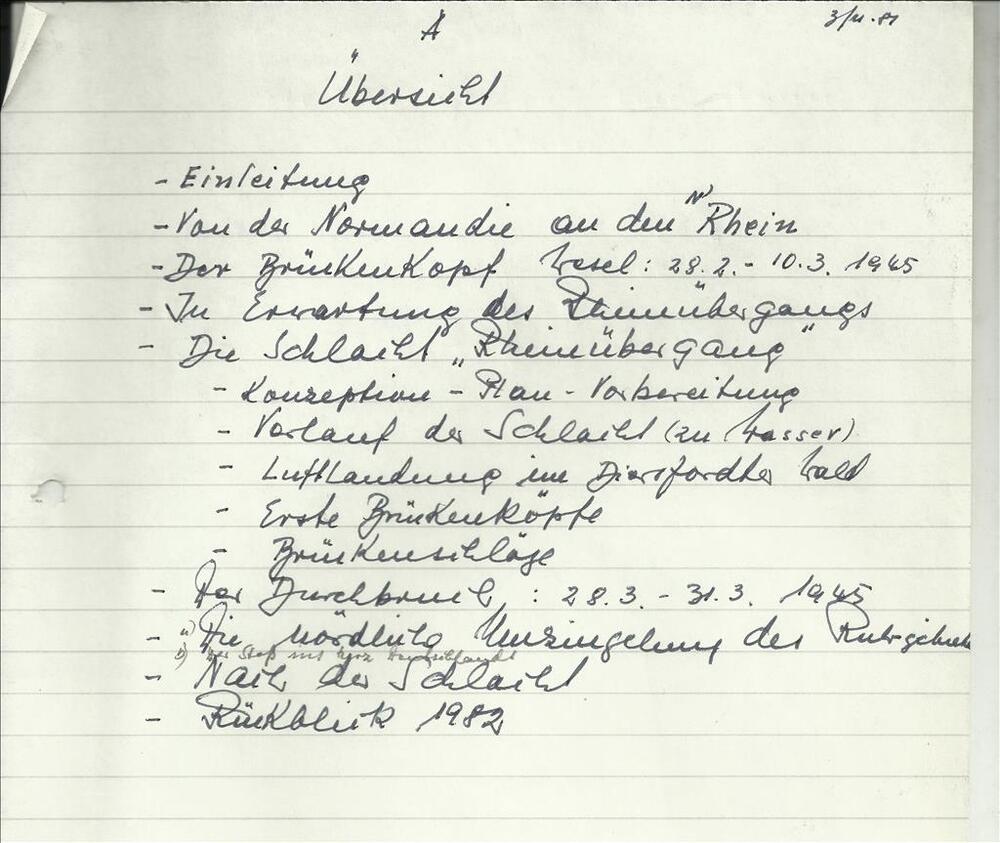 A
3/11.81
Übersicht
- Einleitung
- Von der Normandie an den N Rhein
- Der Brückenkopf Wesel: 28.2. - 10.3. 1945
- In Erwartung des Rheinübergangs
- Die Schlacht „Rheinübergang"
- Konzeption - Plan - Vorbereitung
- Verlauf der Schlacht (zu Wasser)
- Luftlandung im Diersfordter Wald
- Erste Brückenköpfe
- Brückenschläge
- Der Durchbruch : 28.3. - 31.3. 1945
- a) Die nördliche Umzingelung des Ruhrgebiets
b) Der Stoß ins Herz Deutschlands
- Nach der Schlacht
- Rückblick 1982